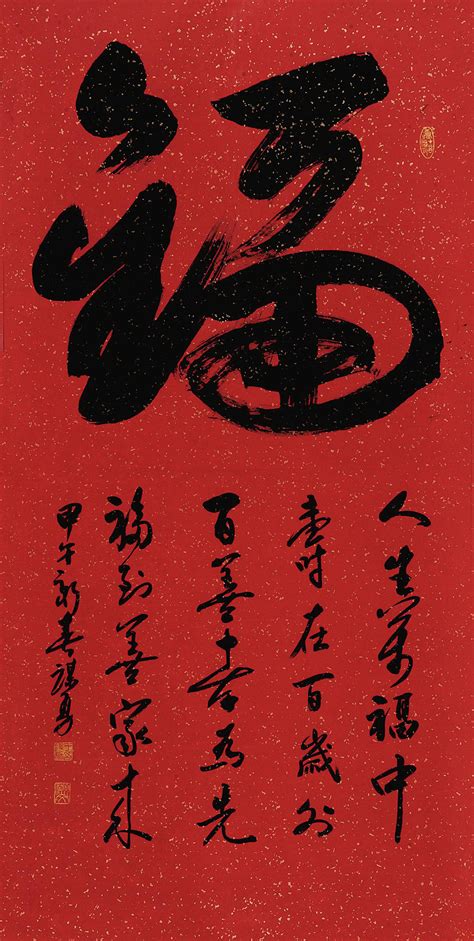 福
人生萬福中
壽在百歲外
百善孝为先
福到善家来
甲午新春